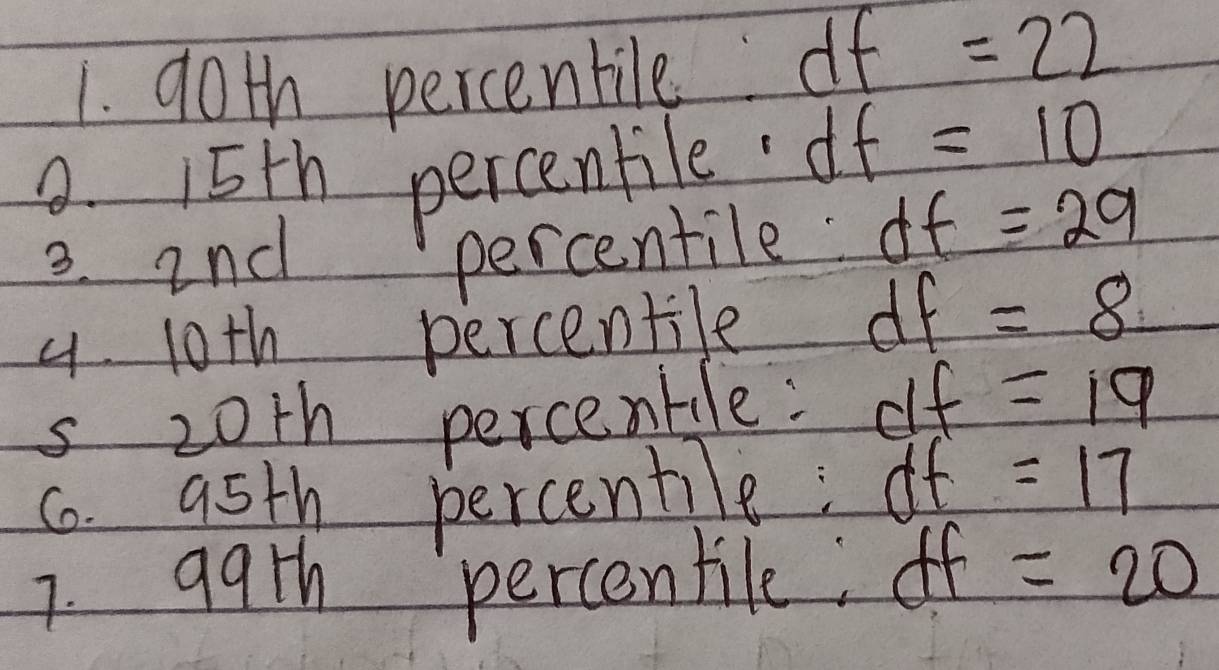 1. 90th percentile : df = 22
2. 15th percentile : df = 10
3. 2nd percentile : df = 29
4. 10th percentile df = 8
5 20th percentile : df = 19
6. 95th percentile : df = 17
7. 99th percentile : df = 20